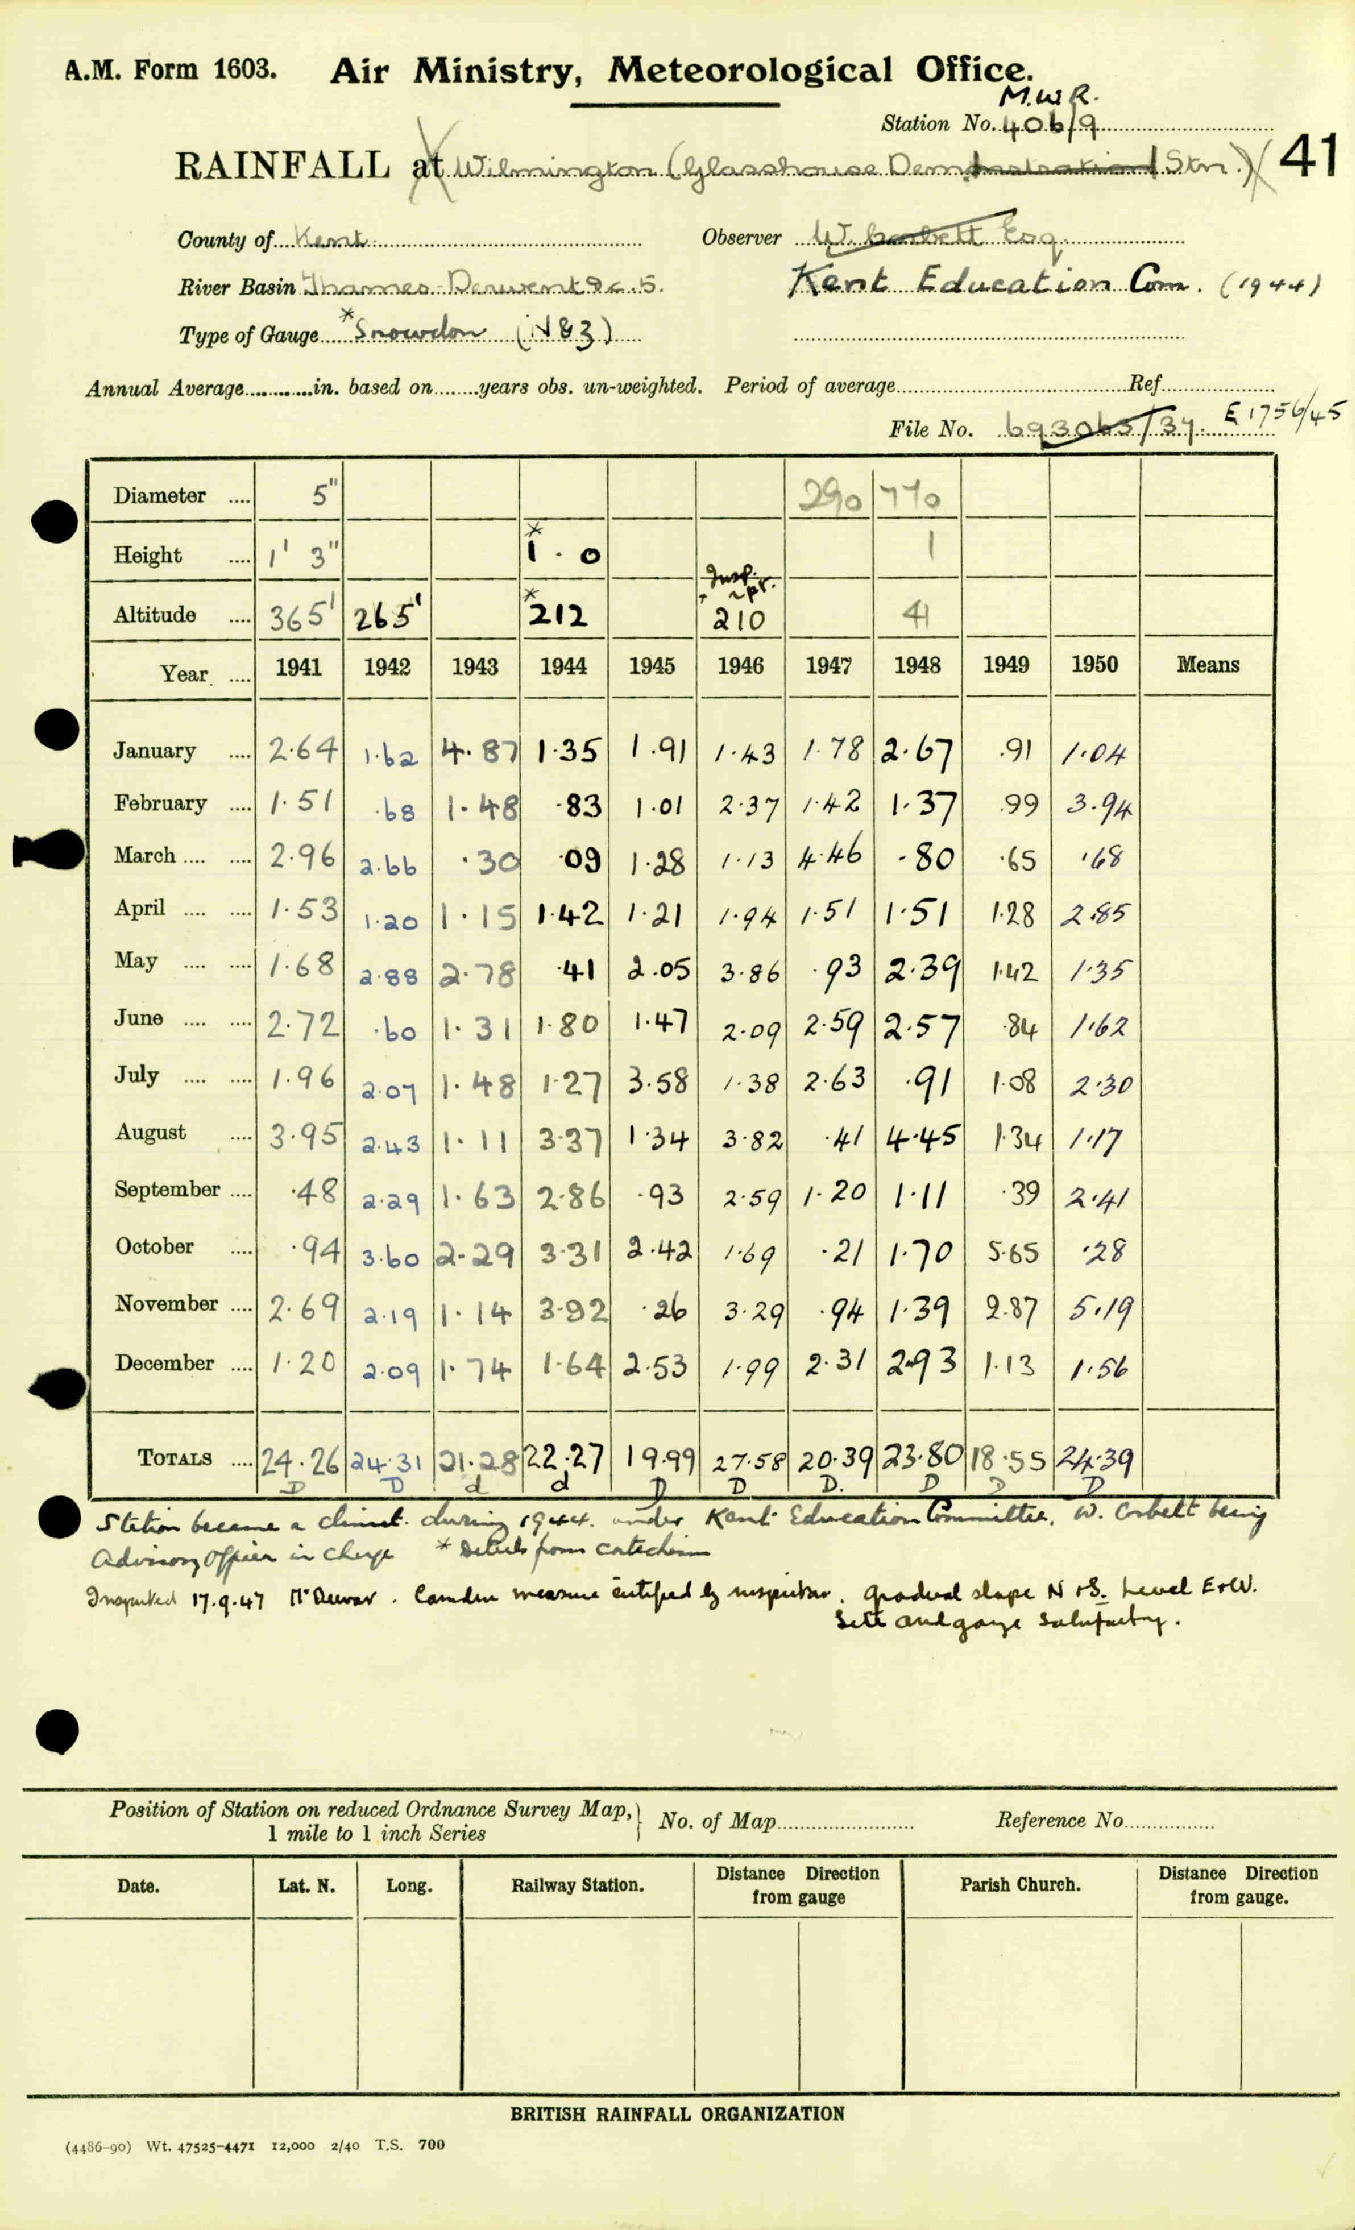 A.M. Form 1603. Air Ministry, Meteorological Office.
M.W.R.
Station No. 406/9
RAINFALL at Wilmington (Glasshouse Demonstration Stn.) 41
County of Kent Observer W. Corbett Esq.
River Basin Thames-Derwent &c. 5. Kent Education Com. (1944)
Type of Gauge *Snowdon
Annual Average in. based on years obs. un-weighted. Period of average Ref
File No. 693065/37. E 1756/45
Diameter 5" 290 770
Height 1' 3" *1.0 1
Insp.
Altitude 365' 265' *212 210 41
Year 1941 1942 1943 1944 1945 1946 1947 1948 1949 1950 Means
January 2.64 1.62 4.87 1.35 1.91 1.43 1.78 2.67 .91 1.04
February 1.51 .68 1.48 .83 1.01 2.37 1.42 1.37 .99 3.94
March 2.96 2.66 .30 .09 1.28 1.13 4.46 .80 .65 .68
April 1.53 1.20 1.15 1.42 1.21 1.94 1.51 1.51 1.28 2.85
May 1.68 2.88 2.78 .41 2.05 3.86 .93 2.39 1.42 1.35
June 2.72 .60 1.31 1.80 1.47 2.09 2.59 2.57 .84 1.62
July 1.96 2.07 1.48 1.27 3.58 1.38 2.63 .91 1.08 2.30
August 3.95 2.43 1.11 3.37 1.34 3.82 .41 4.45 1.34 1.17
September .48 2.29 1.63 2.86 .93 2.59 1.20 1.11 .39 2.41
October .94 3.60 2.29 3.31 2.42 1.69 .21 1.70 5.65 .28
November 2.69 2.19 1.14 3.92 .26 3.29 .94 1.39 2.87 5.19
December 1.20 2.09 1.74 1.64 2.53 1.99 2.31 2.93 1.13 1.56
TOTALS 24.26 24.31 21.28 22.27 19.99 27.58 20.39 23.80 18.55 24.39
D D d d D D D. D D D
Station became a climat. during 1944. under Kent Education Committee, W. Corbett being
Advisory Officer in charge * Details from catechism
Inspected 17.9.47 Camden measure certified by inspector. Gradual slope N + S. Level E + W.
Site and gauge satisfactory.
Position of Station on reduced Ordnance Survey Map, No. of Map Reference No
1 mile to 1 inch Series
Date. Lat. N. Long. Railway Station. Distance Direction from gauge Parish Church. Distance Direction from gauge.
BRITISH RAINFALL ORGANIZATION
(4486-90) Wt. 47525-4471 12,000 2/40 T.S. 700